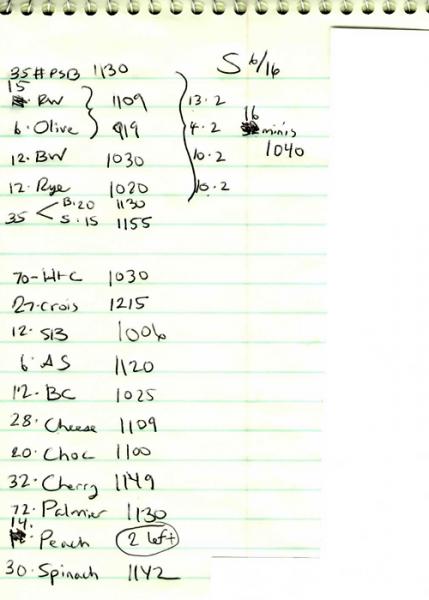 S 6/16
35# PSB 1130
15 RW 1109 13·2
6·Olive 919 4·2
16 minis
12·BW 1030 10·2
1040
12·Rye 1020 10·2
35 < B·20 1130
S·15 1155
70-HTC 1030
27·Crois 1215
12·SB 1006
6·AS 1120
12·BC 1025
28·Cheese 1109
20·Choc 1100
32·Cherry 1149
72·Palmier 1130
14· Peach 2 left
30·Spinach 1142